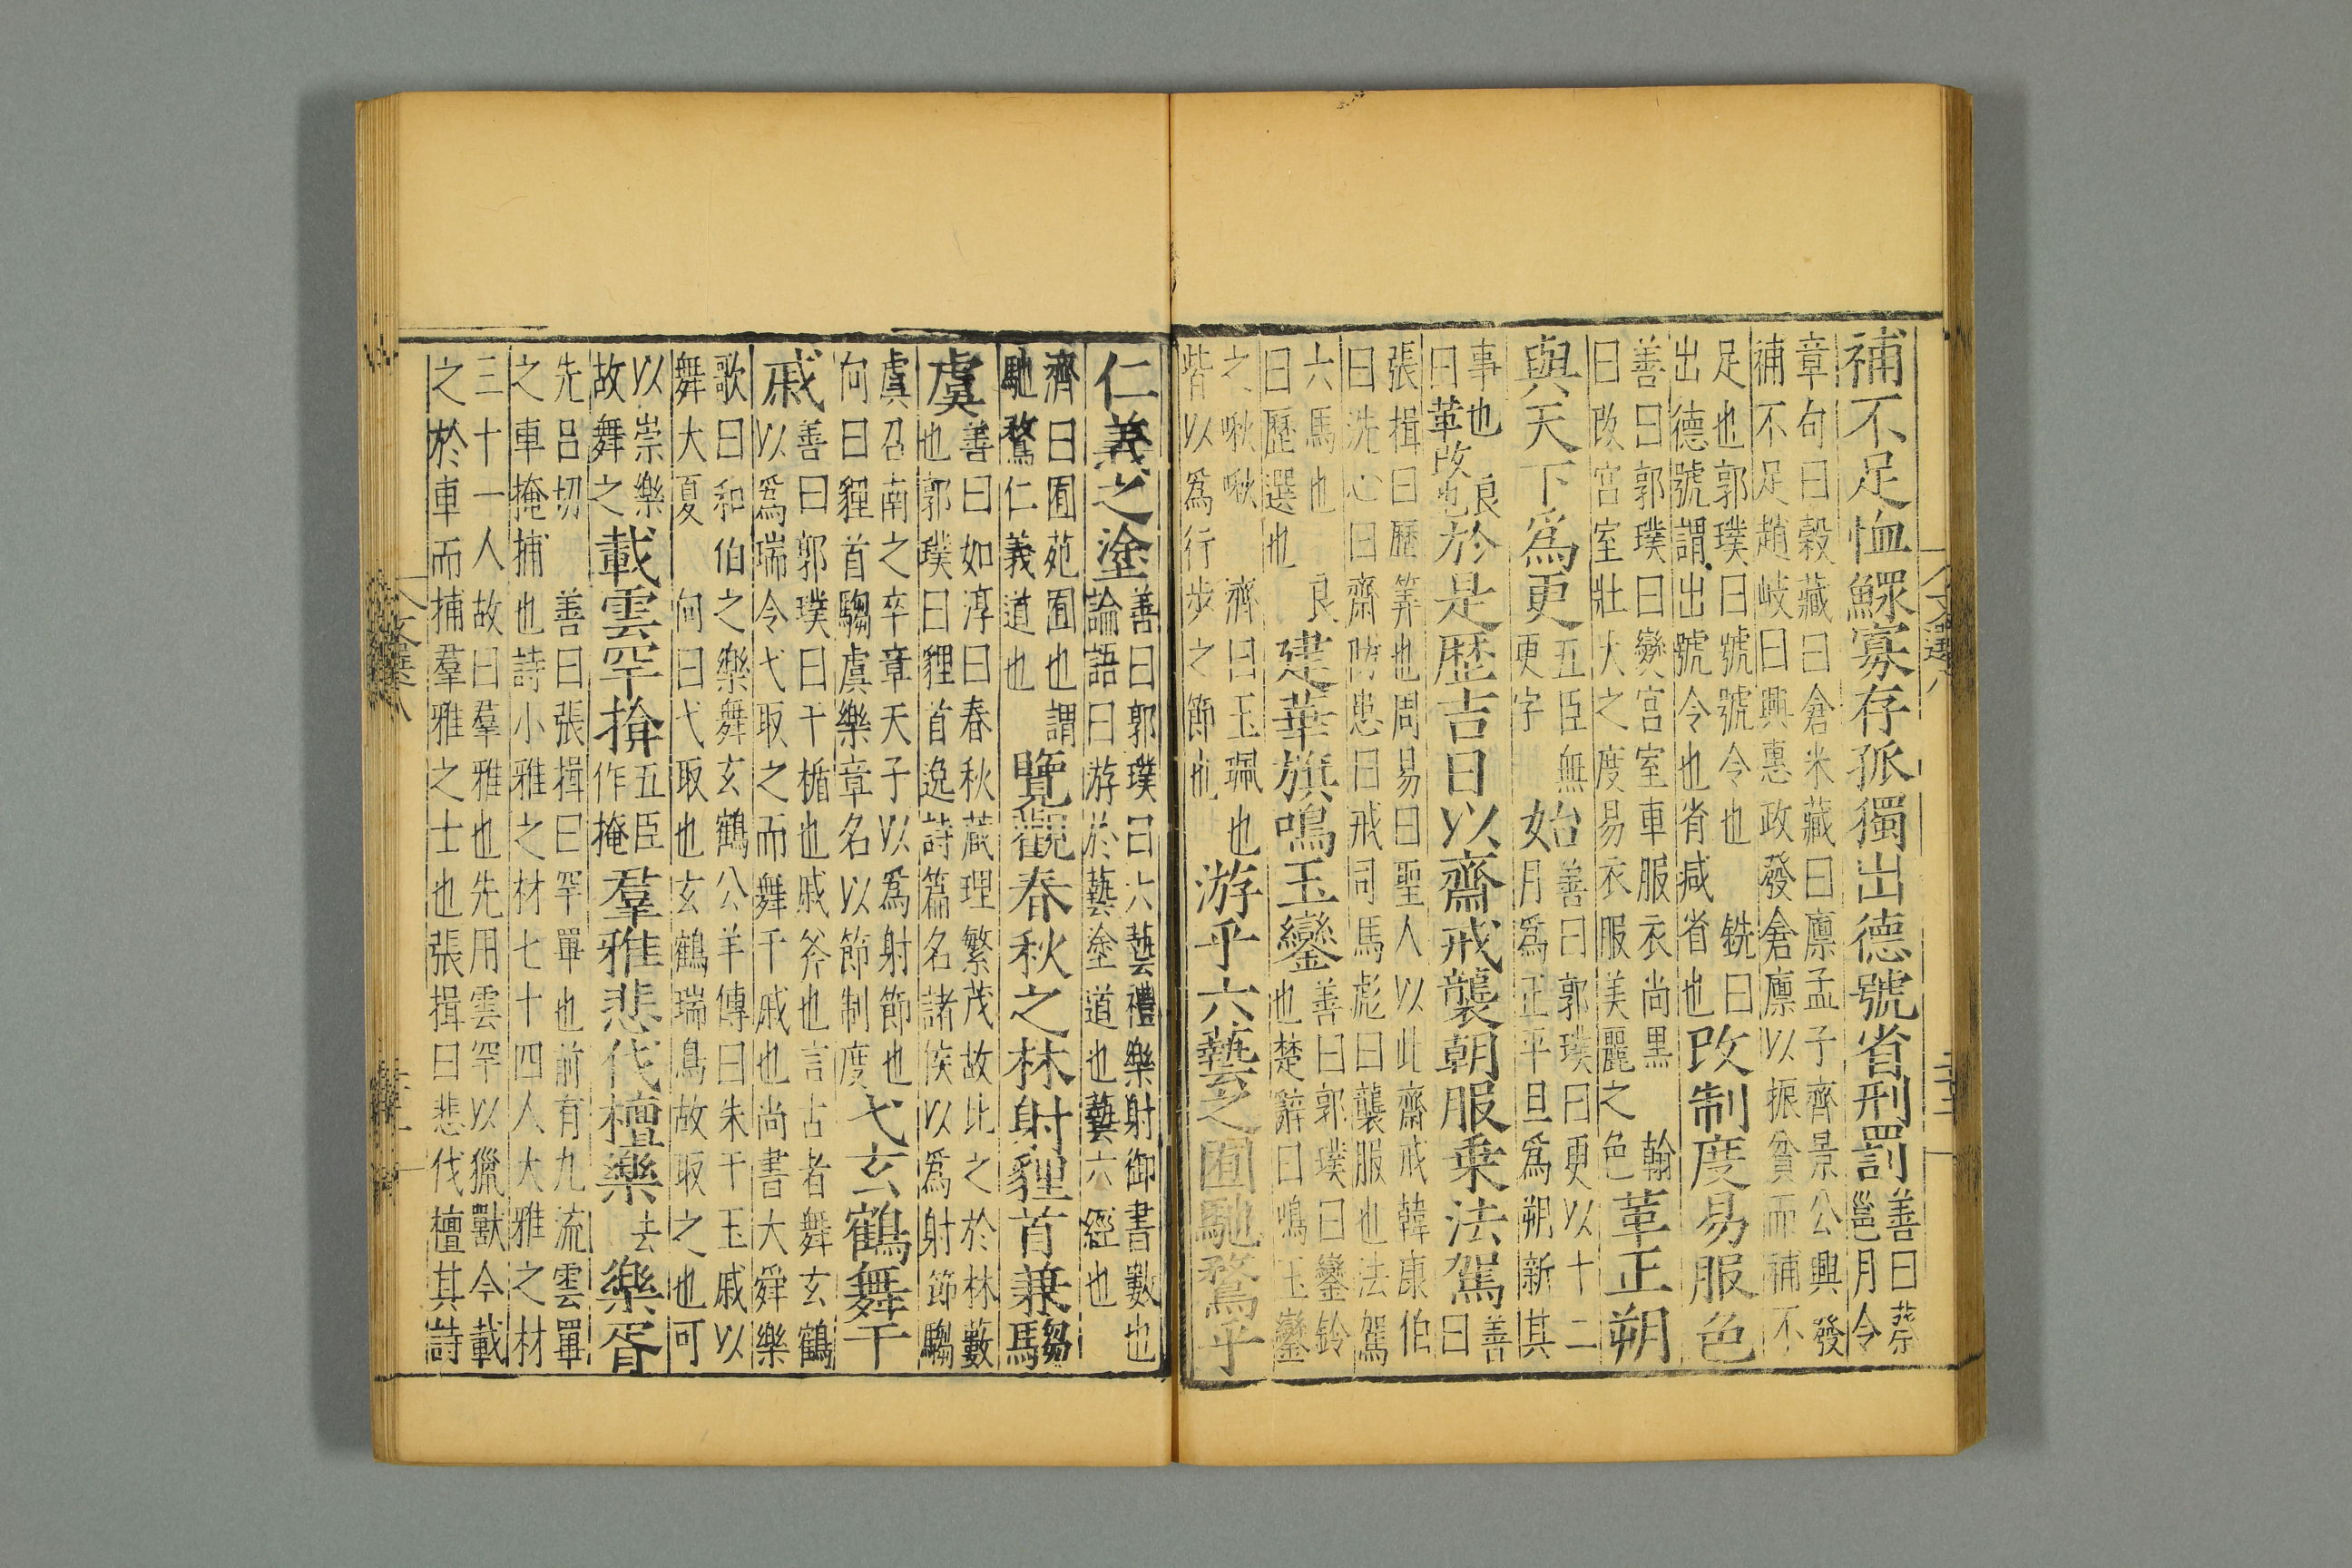 補不足恤鰥寡存孤獨出德號省刑罰善曰蔡邕月令
章句曰穀藏曰倉米藏曰廪孟子齊景公興發補不足趙岐曰興惠政發倉廪以振貧而補不
足也郭璞曰號號令也銑曰出德號謂出號令也省减省也改制度易服色
善曰郭璞曰變宮室車服衣尚黑翰曰改宮室壯大之度易衣服美麗之色革正朔
與天下爲更五臣無更字始善曰郭璞曰更以十二月爲正平旦爲朔新其
事也良曰革改也於是歷吉日以齋戒襲朝服乗法駕善曰
張揖曰歷筭也周易曰聖人以此齋戒韓康伯曰洗心曰齋防患曰戒司馬彪曰襲服也法駕
六馬也良曰歷選也建華旗鳴玉鑾善曰郭璞曰鑾鈴也楚辭曰鳴玉鑾
之啾啾濟曰玉珮也皆以爲行步之節也游乎六藝之囿馳騖乎
仁義之塗善曰郭璞曰六藝禮樂射御書數也論語曰游於藝塗道也藝六經也
濟曰囿苑囿也謂馳騖仁義道也覽觀春秋之林射貍首兼騶
虞善曰如淳曰春秋葴理繁茂故比之於林藪也郭璞曰貍首逸詩篇名諸侯以爲射節騶
虞召南之卒章天子以爲射節也向曰貍首騶虞樂章名以節制度弋玄鶴舞干
戚善曰郭璞曰干楯也戚斧也言古者舞玄鶴以爲瑞令弋取之而舞干戚也尚書大舜樂
歌曰和伯之樂舞玄鶴公羊傳曰朱干玉戚以舞大夏向曰弋取也玄鶴瑞鳥故取之也可
以崇樂故舞之載雲罕揜五臣作掩羣雅悲伐檀樂去樂胥
先吕切善曰張揖曰罕罼也前有九流雲罼之車掩捕也詩小雅之材七十四人大雅之材
三十一人故曰羣雅也先用雲罕以獵獸今載之於車而捕羣雅之士也張揖曰悲伐檀其詩
文選八